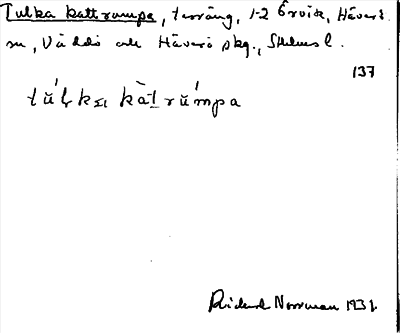 Tulka kattrumpa, terräng, 1-2 Örvik, Häverö
sn, Väddö och Häverö skg., Sthlms l.
137
tŭ́lka kàt rŭ́mpa
Rickard Norrman 1931.